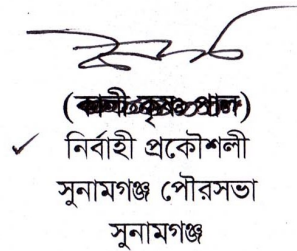 নির্বাহী প্রকৌশলী
সুনামগঞ্জ পৌরসভা
সুনামগঞ্জ